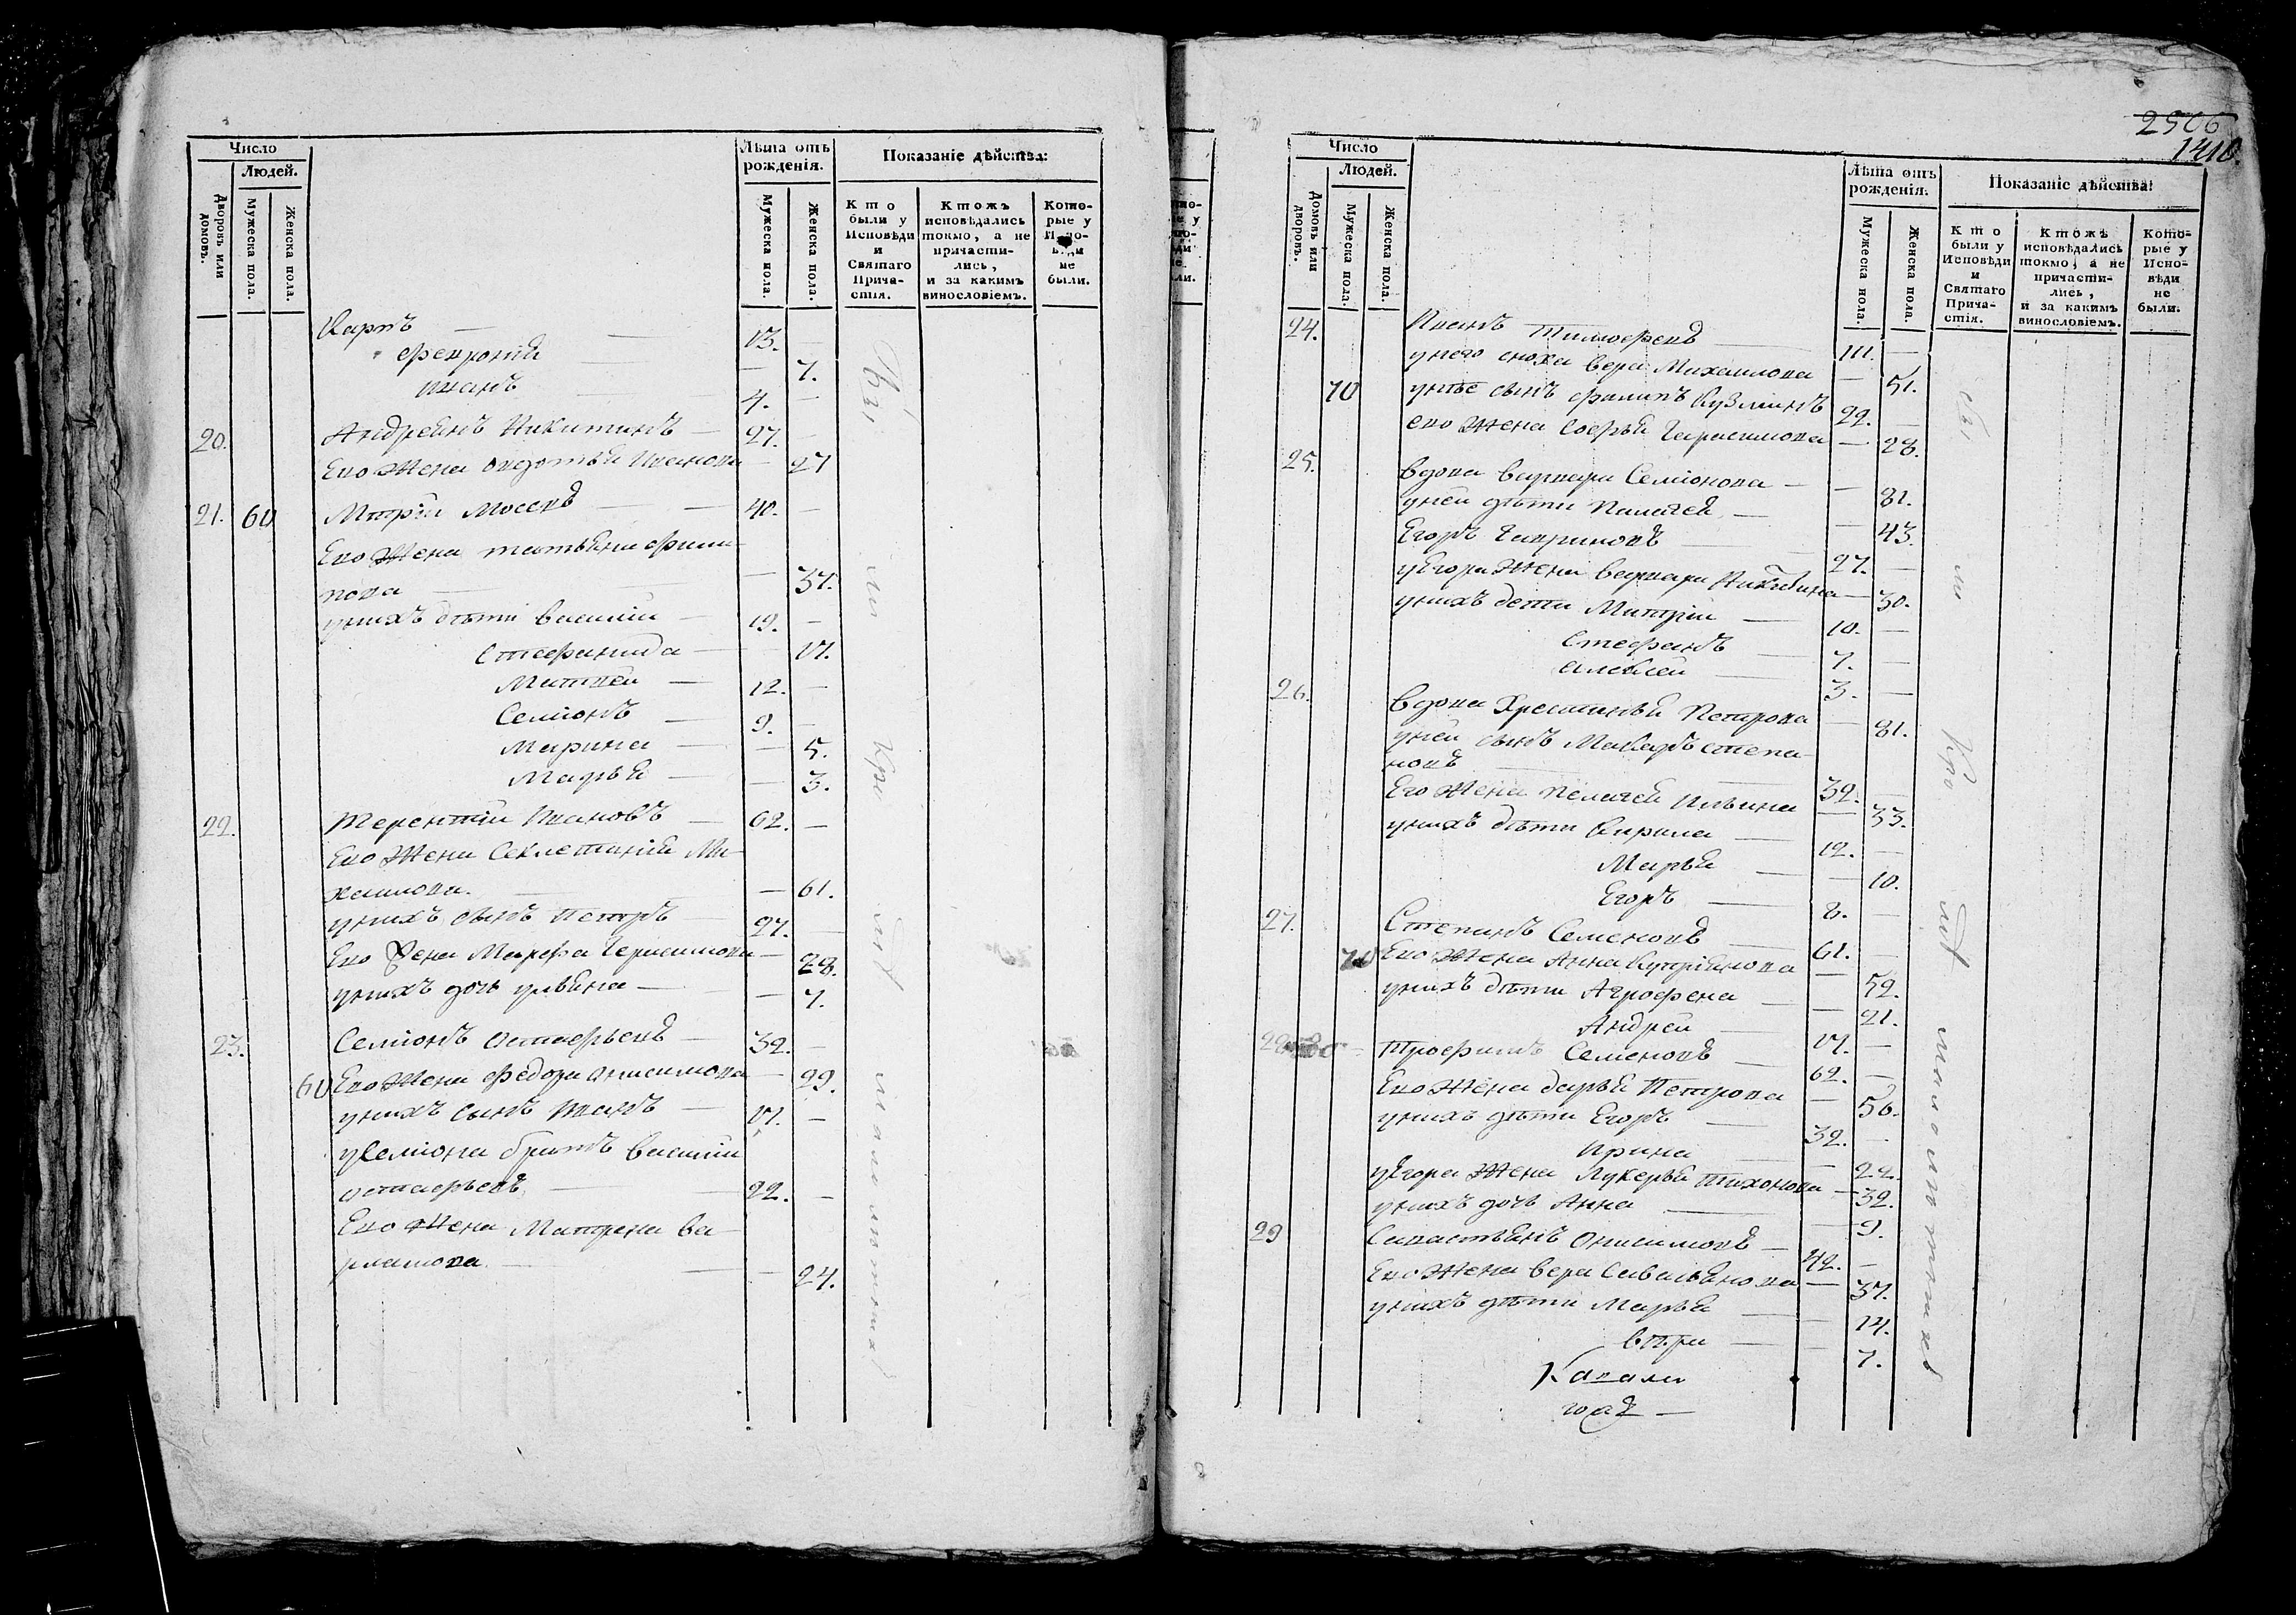 Число
Людей.
Дворовъ или домовъ.
Мужеска пола.
Женска пола.
Лѣта отъ рожденія.
Мужеска пола.
Женска пола.
Показаніе дѣйства:
Кто были у Исповѣди и Святаго Причастія.
Ктожъ исповѣдались токмо, а не причастились, и за какимъ винословіемъ.
Которые у Исповѣди не были.
Карпъ — 13.
Феврониѣ — 7.
Иванъ 4. —
20. Андреянъ Никитинъ — 27. —
Ево жена овдотья Иванова — 27
21. 60 Митрій Мосевъ — 40. —
Ево жена татьяна филипова — 37.
у нихъ дѣти василии — 19. —
Стефанида — 17.
Матвеи — 12. —
Семіонъ — 9. —
Марина — 5.
Марья — 3.
22. Терентіи Ивановъ — 62. —
Ево жена Секлетинія Михаилова. — 61.
у нихъ сынъ Петръ — 27. —
Ево жена Марфа Герасимова — 28.
у нихъ дочь ульяна — 7.
23. Семіонъ остафьевъ — 32. —
60 Ево жена федора анисимова — 29.
у нихъ сынъ Иванъ — —
у Семіона братъ василии
остафьевъ — 22. —
Ево жена Матрена варламова — 24.
2506
1410.
Число
Людей.
Домовъ или дворовъ.
Мужеска пола.
Женска пола.
Лѣта отъ рожденія.
Мужеска пола.
Женска пола.
Показаніе дѣйства:
Кто были у Исповѣди и Святаго Причастія.
Ктожъ исповѣдались токмо, а не причастились, и за какимъ винословіемъ.
Которые у Исповѣди не были.
24. Иванъ Тимофеевъ — —
у него сноха вера Михаилова — 51.
70 у нѣе сынъ филипъ Кузминъ 22. —
ево жена Софья Герасимова — 28.
25. вдова варвара Семіонова — 81.
у неи дѣти Палагея — 43.
Егоръ Гавриловъ — 27. —
у Егора жена варвара Никитина — 30.
у нихъ дети Митріи — 10. —
Стефанъ — 7. —
алексеи — 3. —
26. вдова Хрестинья Петрова — 81.
у неи сынъ Макаръ степановъ — 32. —
Его жена пелагея Ильина — 33.
у нихъ дѣти Кирила — 12. —
Марья — 10.
Егоръ — 8. —
27. Степанъ Семеновъ — 61. —
70 Ево жена Анна Купріянова — 52.
у нихъ дѣти Агрофена — 21.
Андреи — 17. —
28 Трофимъ Семеновъ — 62. —
Ево жена дарья Петрова — 56.
у нихъ дѣти Егоръ — 32. —
Ирина — 22.
у Егора жена Лукерья тихонова — 32.
у нихъ дочь Анна — 9.
29 Савастьянъ Онисимовъ — 42. —
Ево жена вера Савельянова — 37.
у нихъ дѣти Марья — 14.
вѣра — 7.